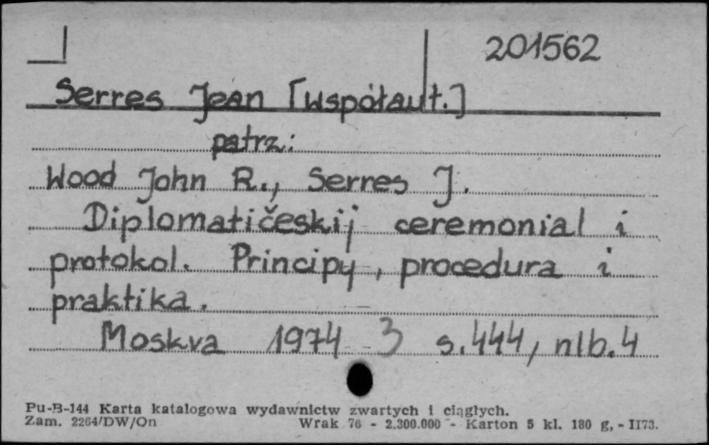 201562
Serres Jean [współaut.]
patrz:
Wood John R., Serres J.
Diplomatičeskij ceremonial i
protokol. Principy, procedura i
praktika.
Moskva 1974 3 s.444, nlb.4
Pu-B-144 Karta katalogowa wydawnictw zwartych i ciągłych.
Zam. 2264/DW/On Wrak 76 - 2.300.000 - Karton 5 kl. 180 g, - II73.